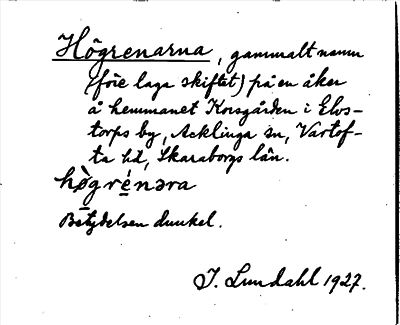 Högrenarna, gammalt namn
(före laga skiftet) på en åker
å hemmanet Korsgården i Elvs-
torps by, Acklinga sn, Vartof-
ta hd, Skaraborgs län.
hø̀grénəra
Betydelsen dunkel.
J. Lundahl 1927.